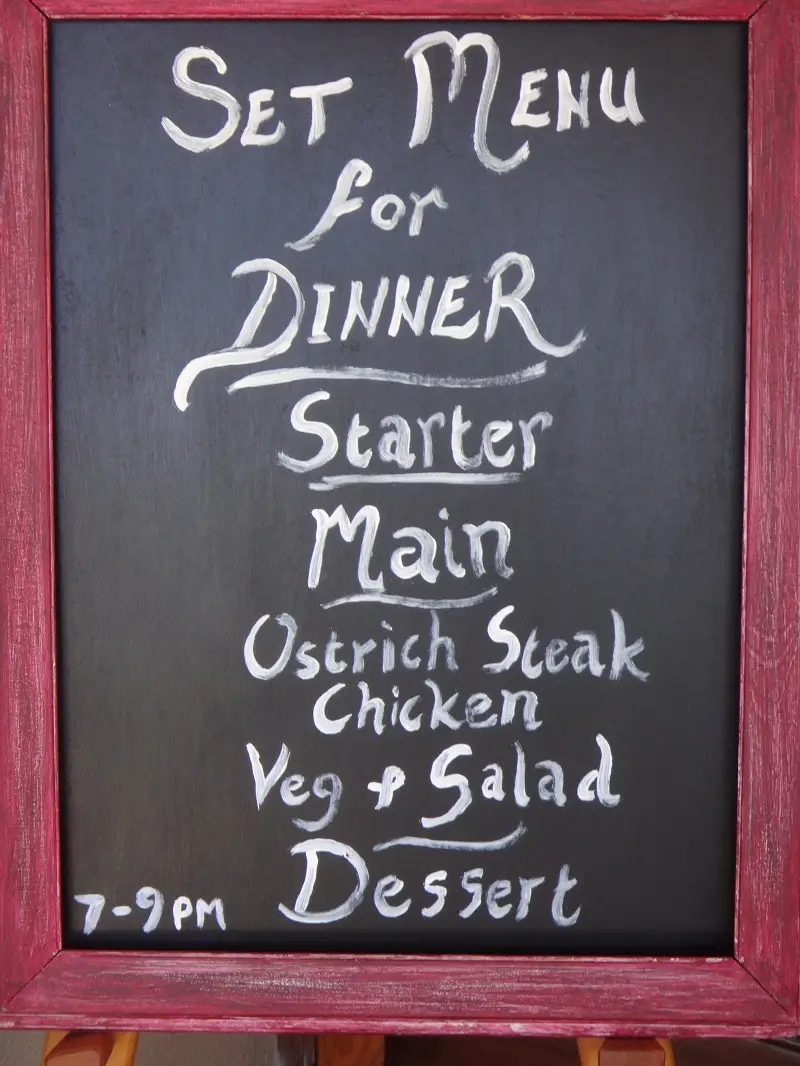 SET MENU
for
DINNER
Starter
Main
Ostrich Steak
Chicken
Veg & Salad
Dessert
7-9 PM